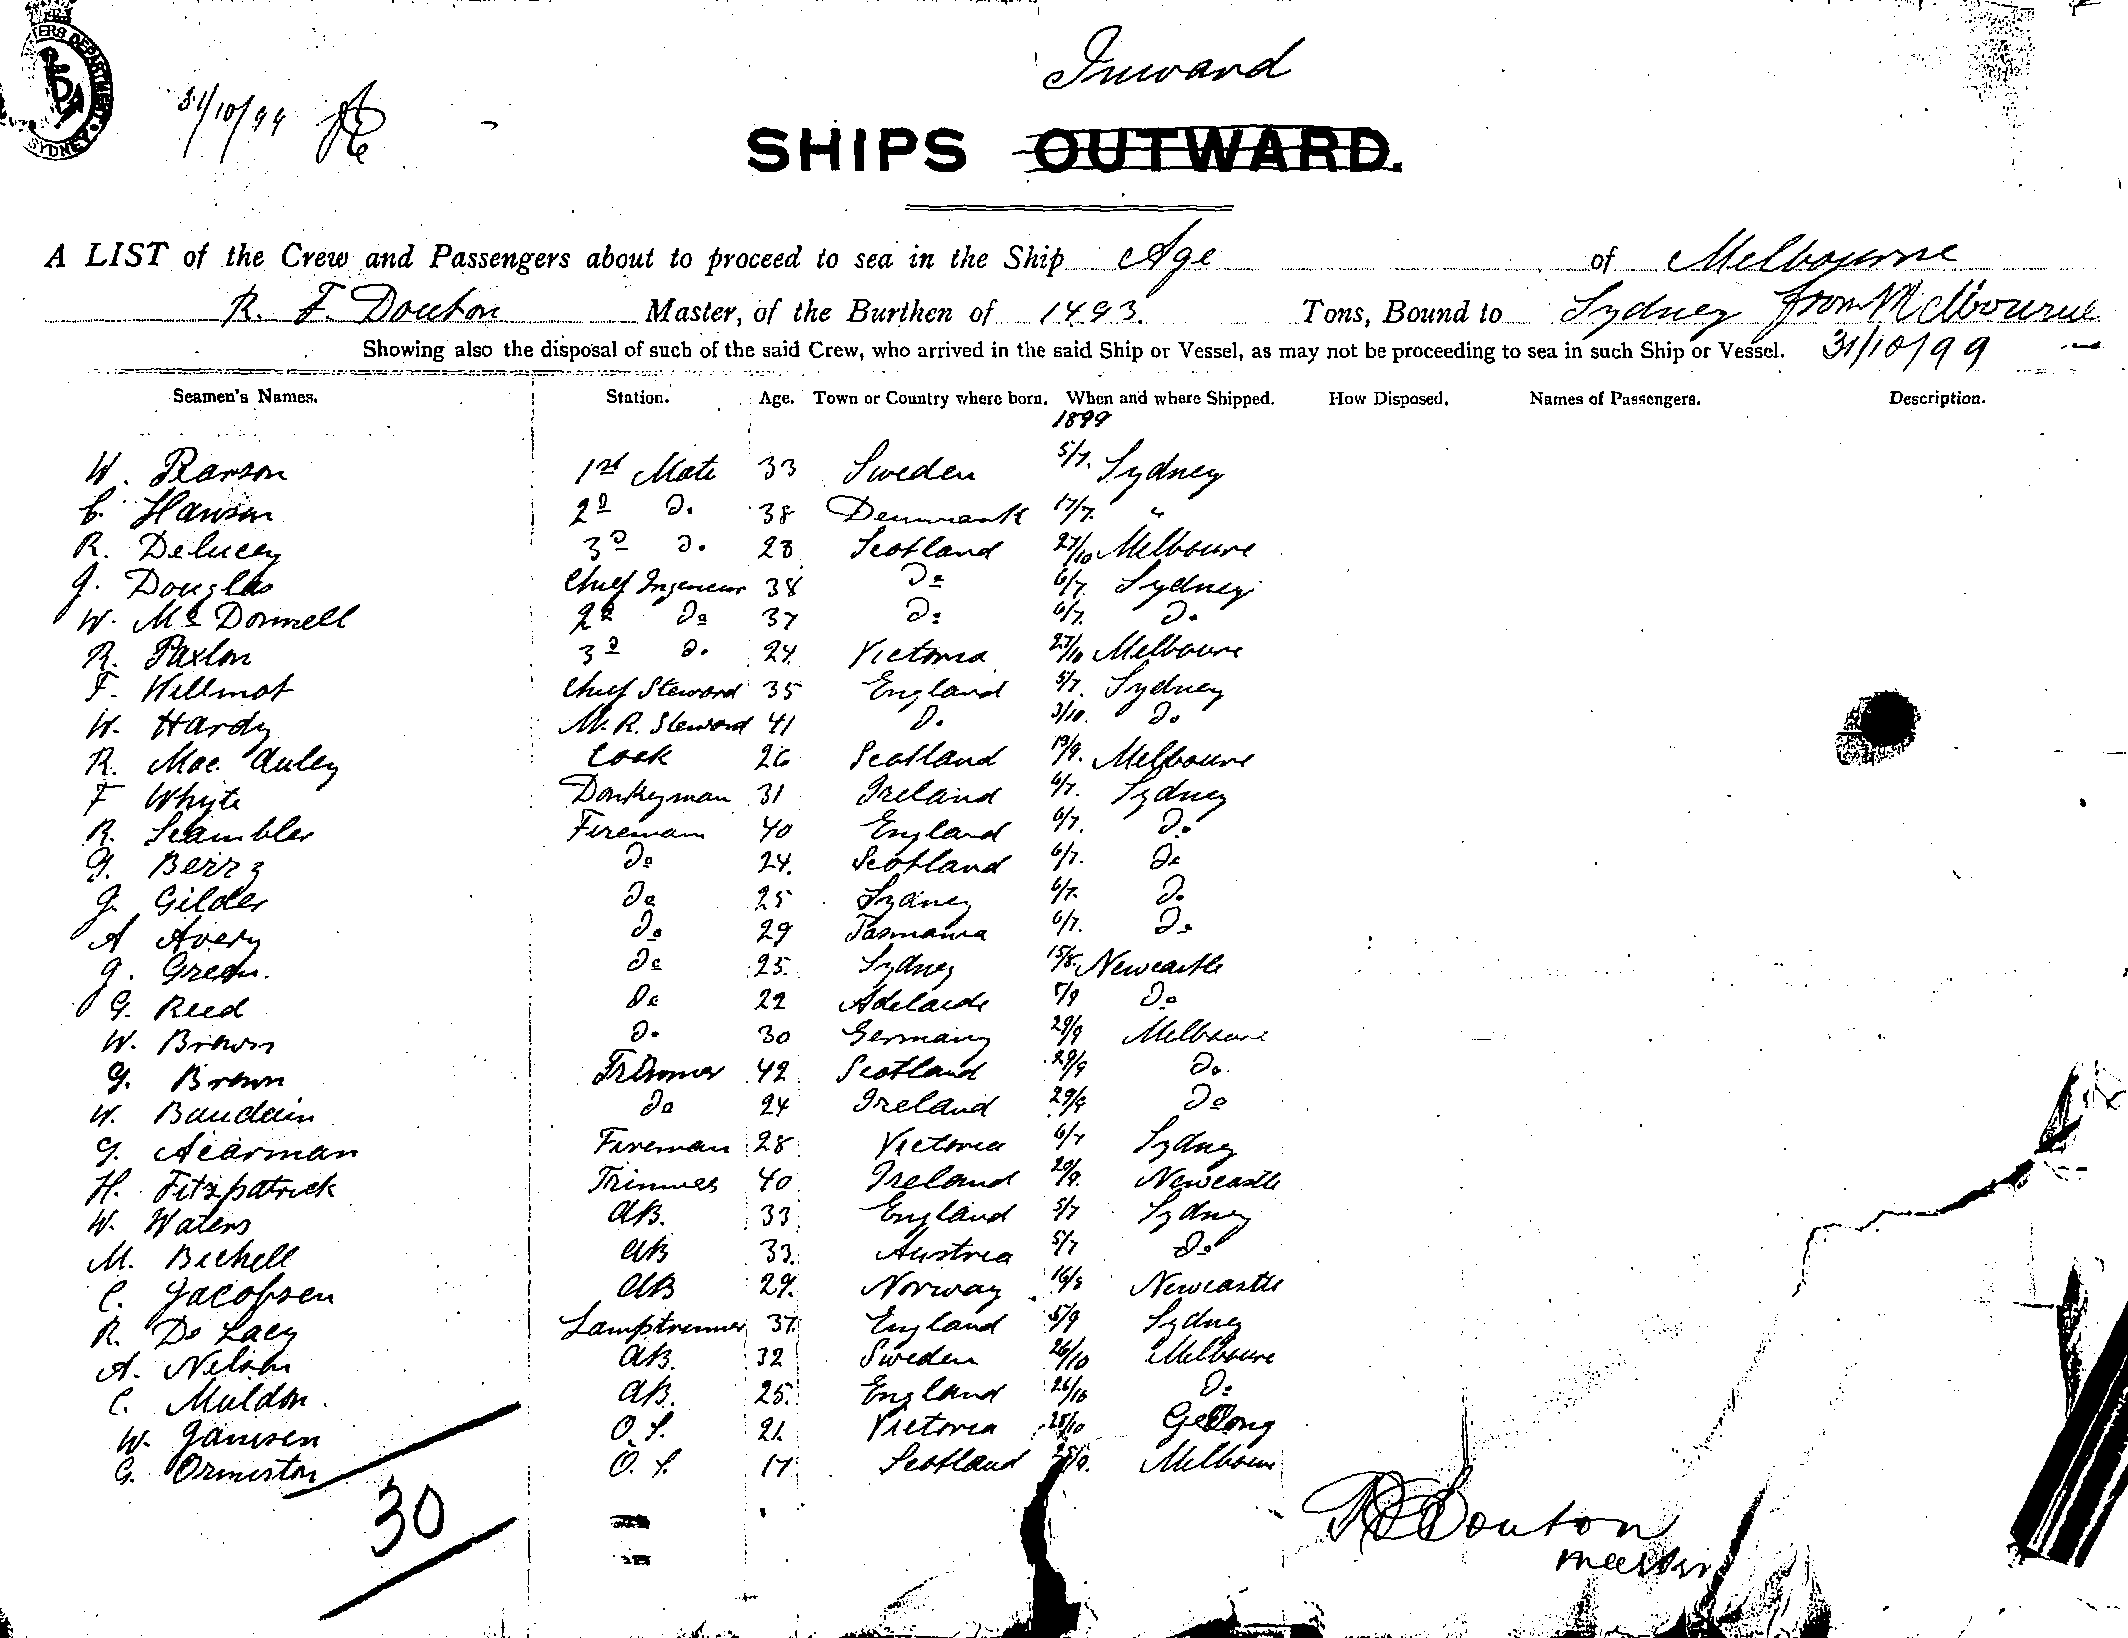 Inward
WATERS DEPARTMENT
SYDNEY
31/10/99
SHIPS OUTWARD.
A LIST of the Crew and Passengers about to proceed to sea in the Ship Age of Melbourne
R. F. Douton Master, of the Burthen of 1493. Tons, Bound to Sydney from Melbourne
Showing also the disposal of such of the said Crew, who arrived in the said Ship or Vessel, as may not be proceeding to sea in such Ship or Vessel. 31/10/99
Seamen's Names. Station. Age. Town or Country where born. When and where Shipped. How Disposed. Names of Passengers. Description.
1899
W. Pearson 1st Mate 33 Sweden 5/7. Sydney
C. Hansen 2d Do. 38 Denmark 17/7. "
R. Delucey 3d Do. 28 Scotland 27/10 Melboure
J. Douglas Chief Ingeneur 38 Do 6/7. Sydney
W. Mc Donnell 2d Do 37 Do 6/7. Do
R. Paxlon 3d Do. 24 Victoria 27/10 Melboure
F. Willmot Chief Steward 35 England 5/7. Sydney
W. Hardy M. R. Steward 41 Do. 3/10. Do
R. Mac Auley Cook 26 Scotland 19/9. Melboure
F Whyte Donkeyman 31 Ireland 6/7. Sydney
R. Scambler Fireman 40 England 6/7. Do
G. Berry Do 24. Scotland 6/7. Do
J. Gilder Do 25 Sydney 6/7. Do
A Avery Do 29 Tasmania 6/7. Do
J. Green. Do 25. Sydney 15/8. Newcastle
G. Reed Do 22 Adelaide 5/9 Do
W. Brown Do 30 Germany 29/9 Melboure
G. Brown Trimmer 42 Scotland 29/9 Do.
W. Baudain Do 24 Ireland 29/9 Do
G. Acarman Fireman 28 Victoria 6/7 Sydney
H. Fitzpatrick Trimmer 40 Ireland 29/9. Newcastle
W. Waters AB. 33 England 5/7 Sydney
M. Bichell AB 33. Austria 5/7 Do
C. Jacobsen AB 29. Norway 16/8 Newcastle
R. De Lacy Lamptremmer 37 England 5/9 Sydney
A. Nelson AB. 32 Sweden 26/10 Melboure
C. Muldon. AB. 25. England 26/10 Do
W. Jamsen O. S. 21. Victoria 25/10 Geelong
G. Ormiston O. S. 17 Scotland Melboure
30
R F Douton
master